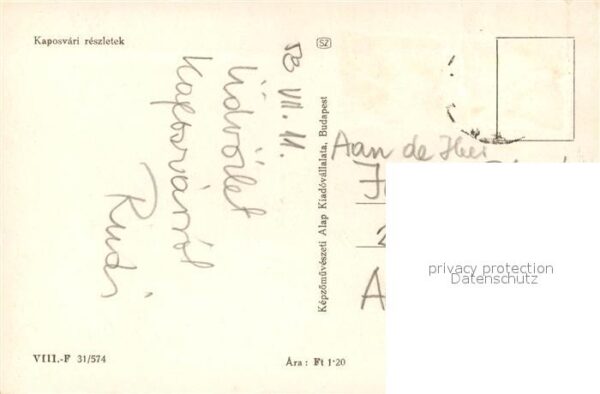 Kaposvári részletek
SZ
58 VII. 11.
Üdvözlet
Kaposvárról
Rudi
Képzőművészeti Alap Kiadóvállalata, Budapest
Aan de
A
privacy protection
Datenschutz
VIII.-F 31/574
Ára: Ft 1·20